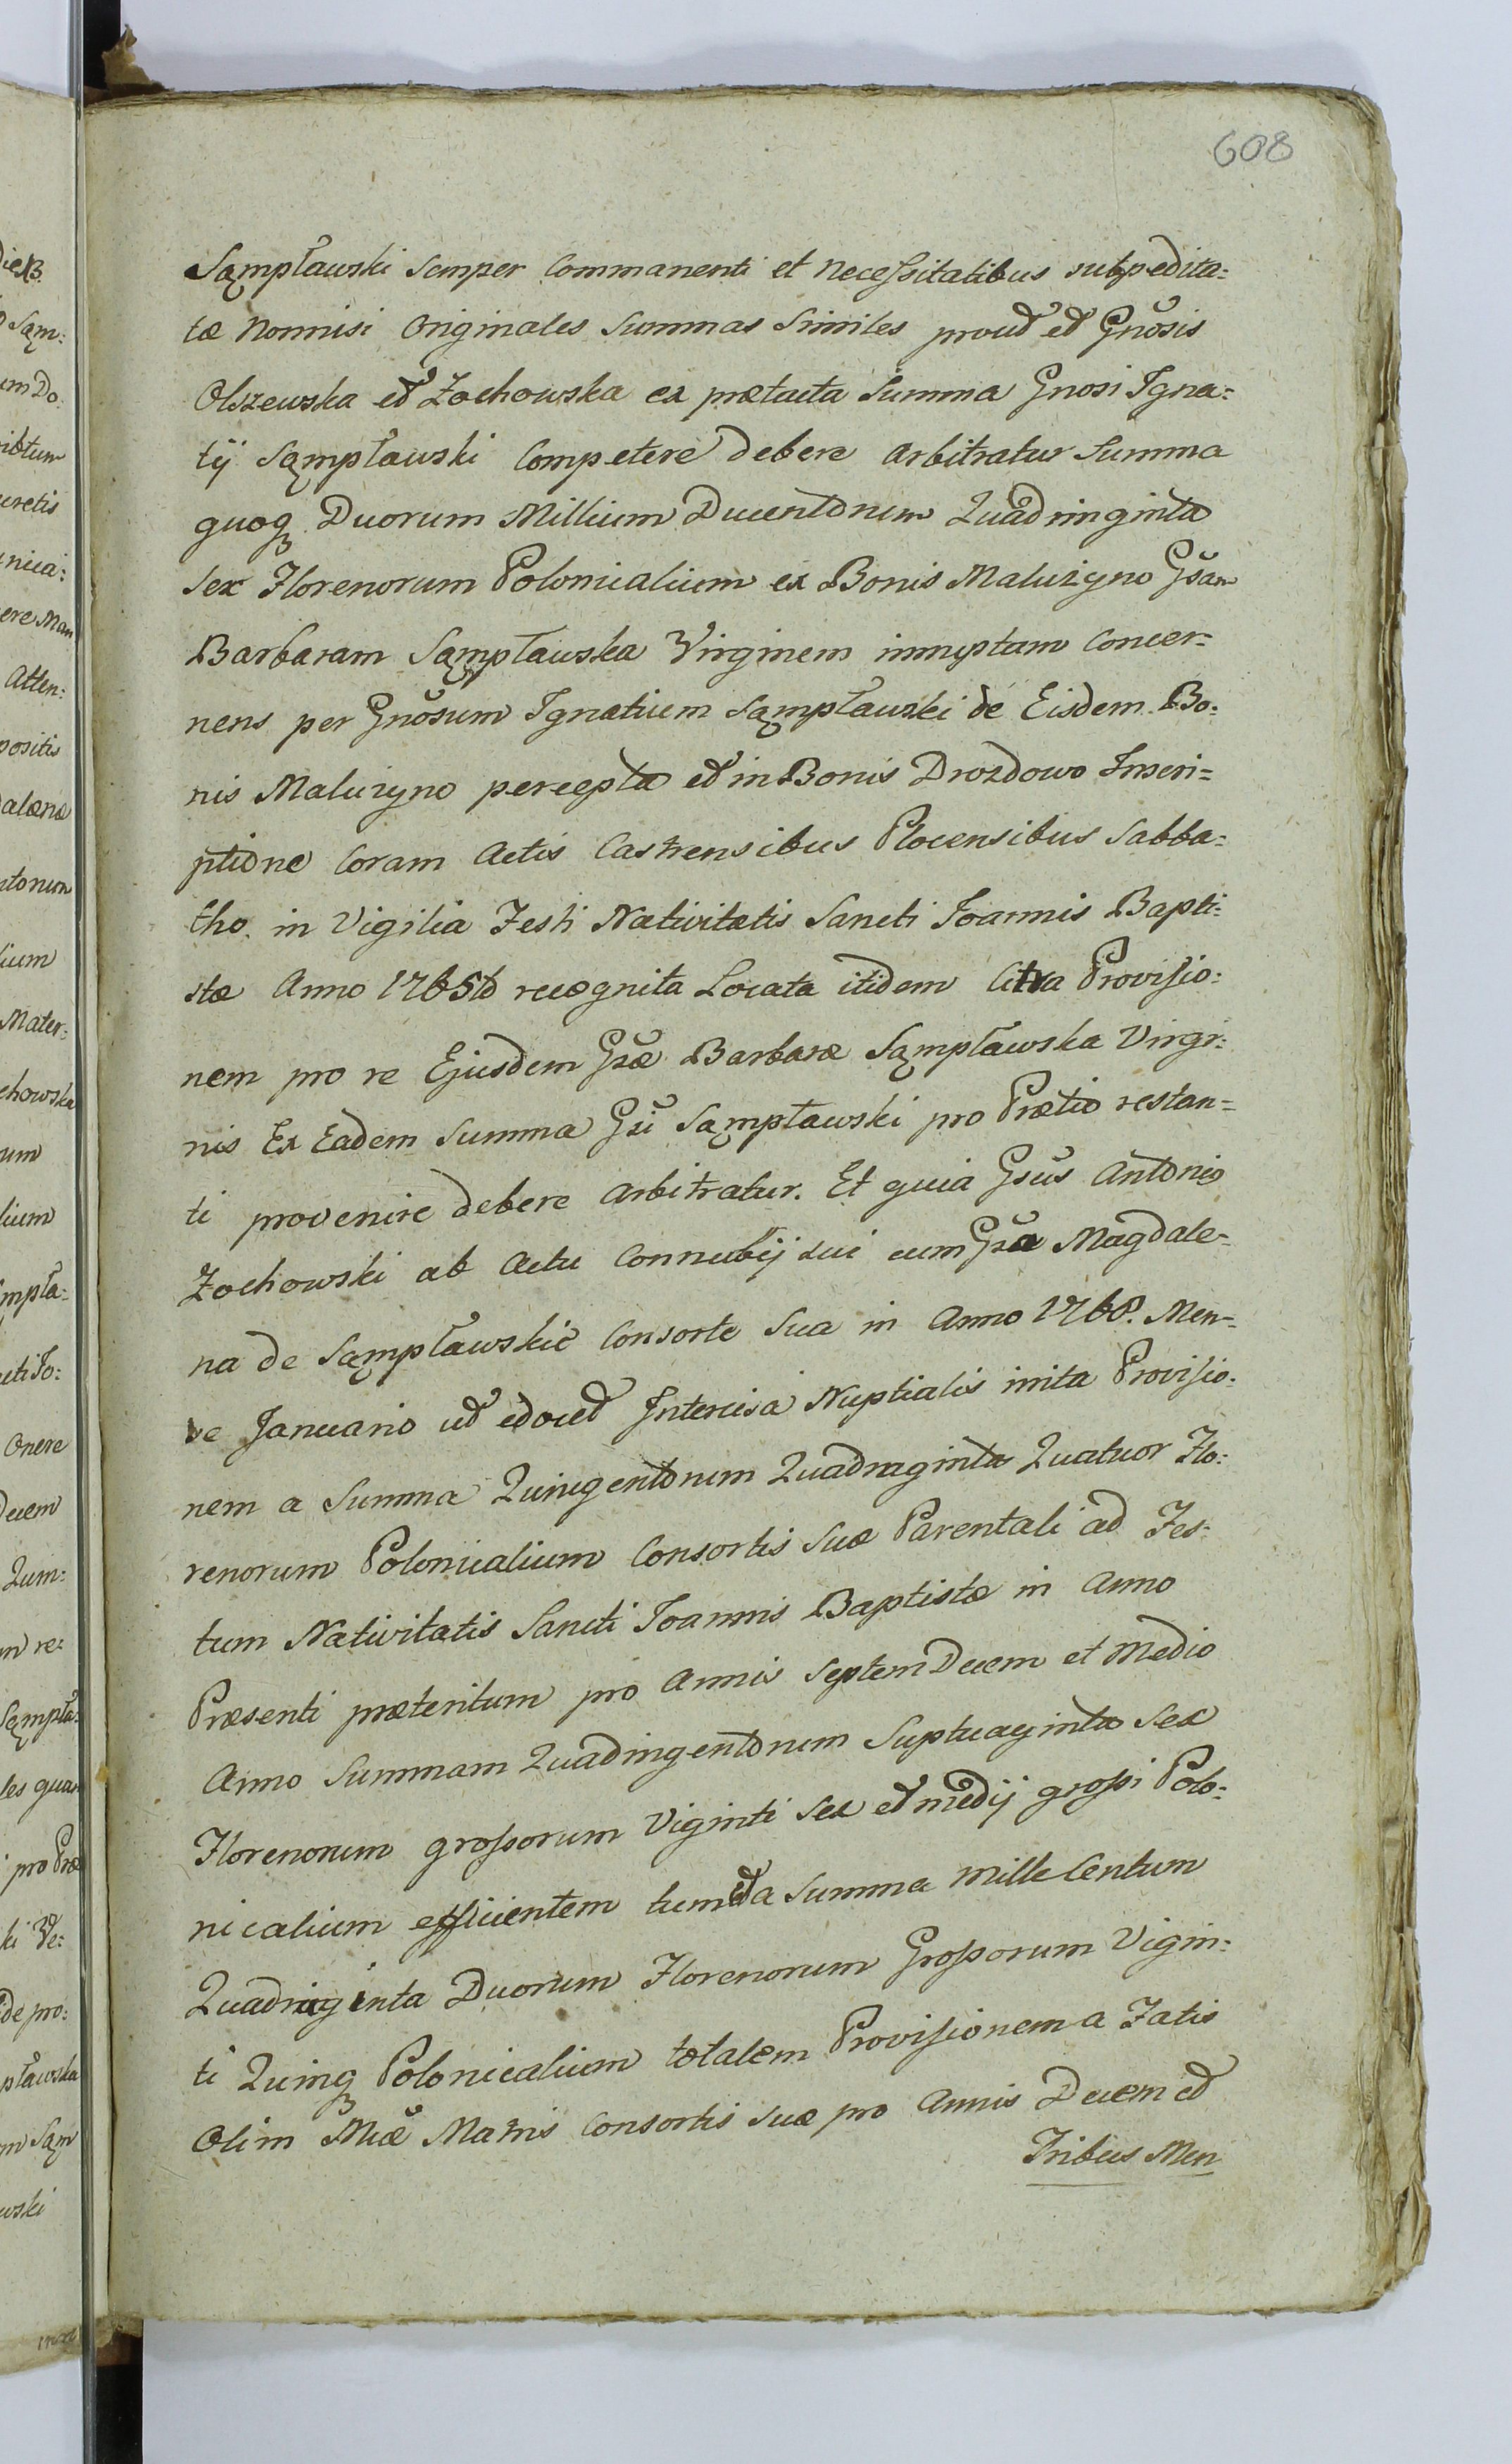 608
Sąmpławski semper Commanenti et necessitatibus subpedita:
tæ nonnisi Originales Summas Similes prout et Gnosis
Olszewska et Zochowska ex prætacta Summa Gnosi Igna:
tij Sąmpławski Competere debere arbitratur Summa
quoq Duorum Millium Ducentorum Quadringinta
sex Florenorum Polonicalium ex Bonis Maluzyno Gsam
Barbaram Sąmpławska Virginem innuptam Concer:
nens per Gnosum Ignatium Sąmpławski de Eisdem Bo:
nis Maluzyno percepta et in Bonis Drozdowo Inscri=
ptione Coram Actis Castrensibus Plocensibus Sabba:
tho in Vigilia Festi Nativitatis Sancti Joannis Bapti:
stæ Anno 1765to recognita Locata itidem Citra Provisio:
nem pro re Ejusdem Gsæ Barbaræ Sąmpławska Virgi:
nis Ex Eadem Summa Gsi Sąmpławski pro Prætio restan=
ti provenire debere arbitratur. Et quia Gsus Antonio
Zochowski ab Actu Connubij sui cum Gsa Magdale=
na de Sąmpławskie Consorte Sua in Anno 1768. Men=
se Januario ut edocet Intercisa Nuptialis inita Provisio:
nem a Summa Quingentorum Quadraginta Quatuor Flo:
renorum Polonicalium Consortis Suæ Parentali ad Fes:
tum Nativitatis Sancti Joannis Baptistæ in Anno
Præsenti præteritum pro Annis Septem Decem et medio
Anno Summam Quadringentorum Suptuaginta Sex
Florenorum grossorum Viginti Sex et medij grossi Polo:
nicalium efficientem tum et a Summa mille Centum
Quadraginta Duorum Florenorum Grossorum Vigin:
ti Quinq Polonicalium totalem Provisionem a Fatis
Olim Mcæ Matris Consortis suæ pro Annis Decem et
Tribus Men